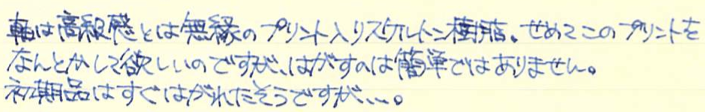 軸は高級感とは無縁のプリント入りスケルトン樹脂。せめてこのプリントを
なんとかして欲しいのですが、はがすのは簡単ではありません。
初期品はすぐはがれたそうですが、、、。